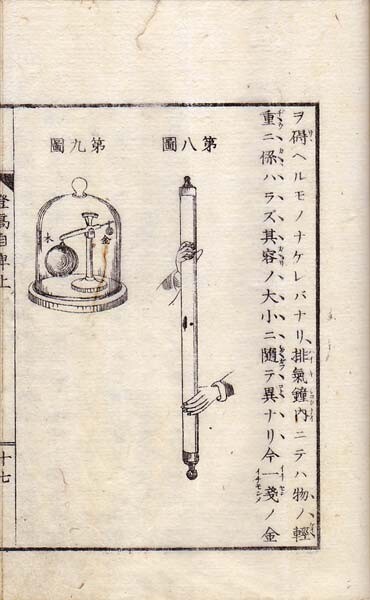 ヲ礙ヘルモノナケレバナリ、排氣鐘內ニテハ物ノ輕
重ニ係ハラズ其容ノ大小ニ隨テ異ナリ今一錢ノ金
第八圖
第九圖
金
木
登高自卑上
十七